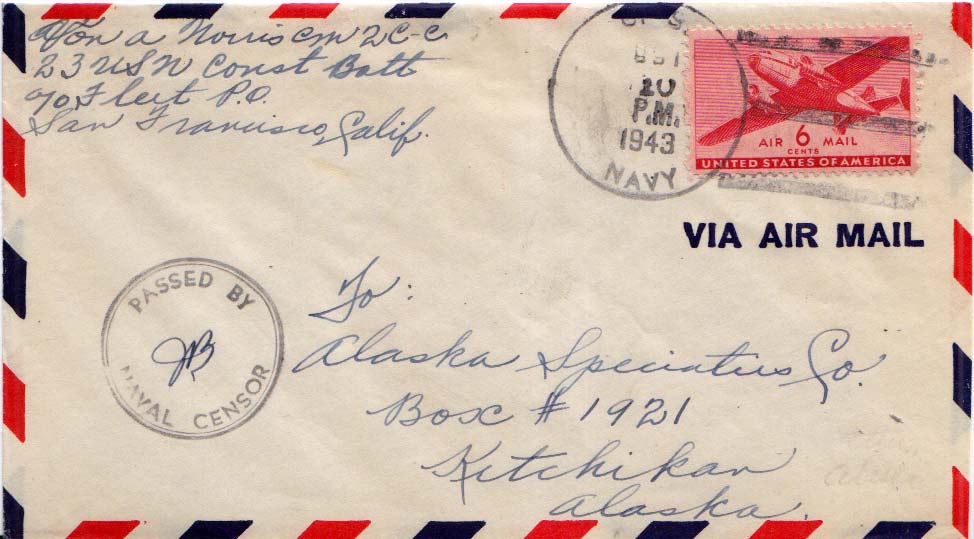 Von a Norris cm 2 C-C
23 USN Const Batt
% Fleet P.O.
San Francisco, Calif.
U.S.
OCT
20
P.M.
1943
NAVY
AIR 6 MAIL
CENTS
UNITED STATES OF AMERICA
VIA AIR MAIL
PASSED BY
JB
NAVAL CENSOR
To:
Alaska Specialties Co.
Box # 1921
Ketchikan
Alaska.